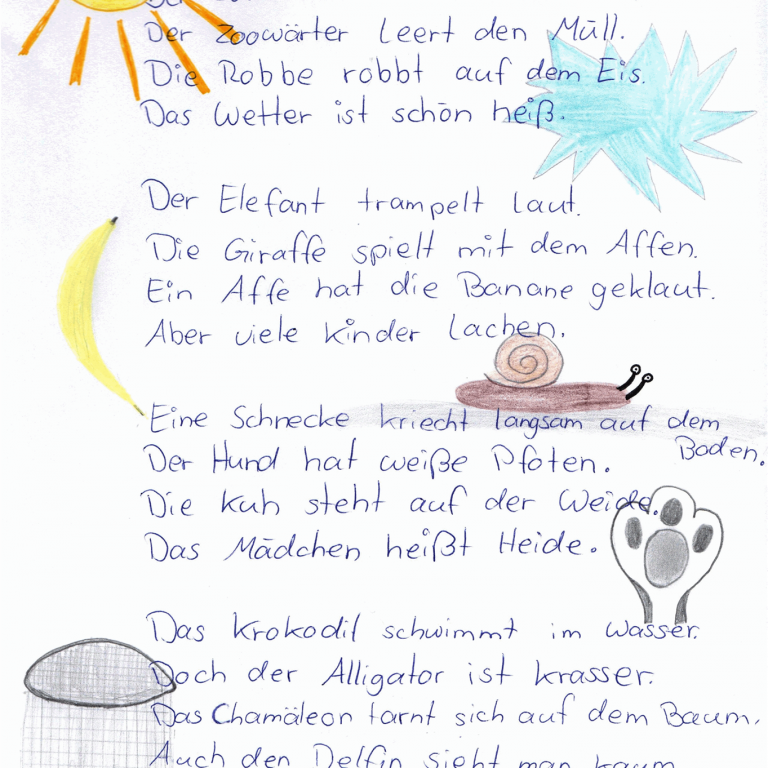 Der Zoowärter leert den Müll.
Die Robbe robbt auf dem Eis.
Das Wetter ist schön heiß.
Der Elefant trampelt laut.
Die Giraffe spielt mit dem Affen.
Ein Affe hat die Banane geklaut.
Aber viele Kinder lachen.
Eine Schnecke kriecht langsam auf dem
Boden.
Der Hund hat weiße Pfoten.
Die Kuh steht auf der Weide.
Das Mädchen heißt Heide.
Das Krokodil schwimmt im Wasser.
Doch der Alligator ist krasser.
Das Chamäleon tarnt sich auf dem Baum.
Auch den Delfin sieht man kaum